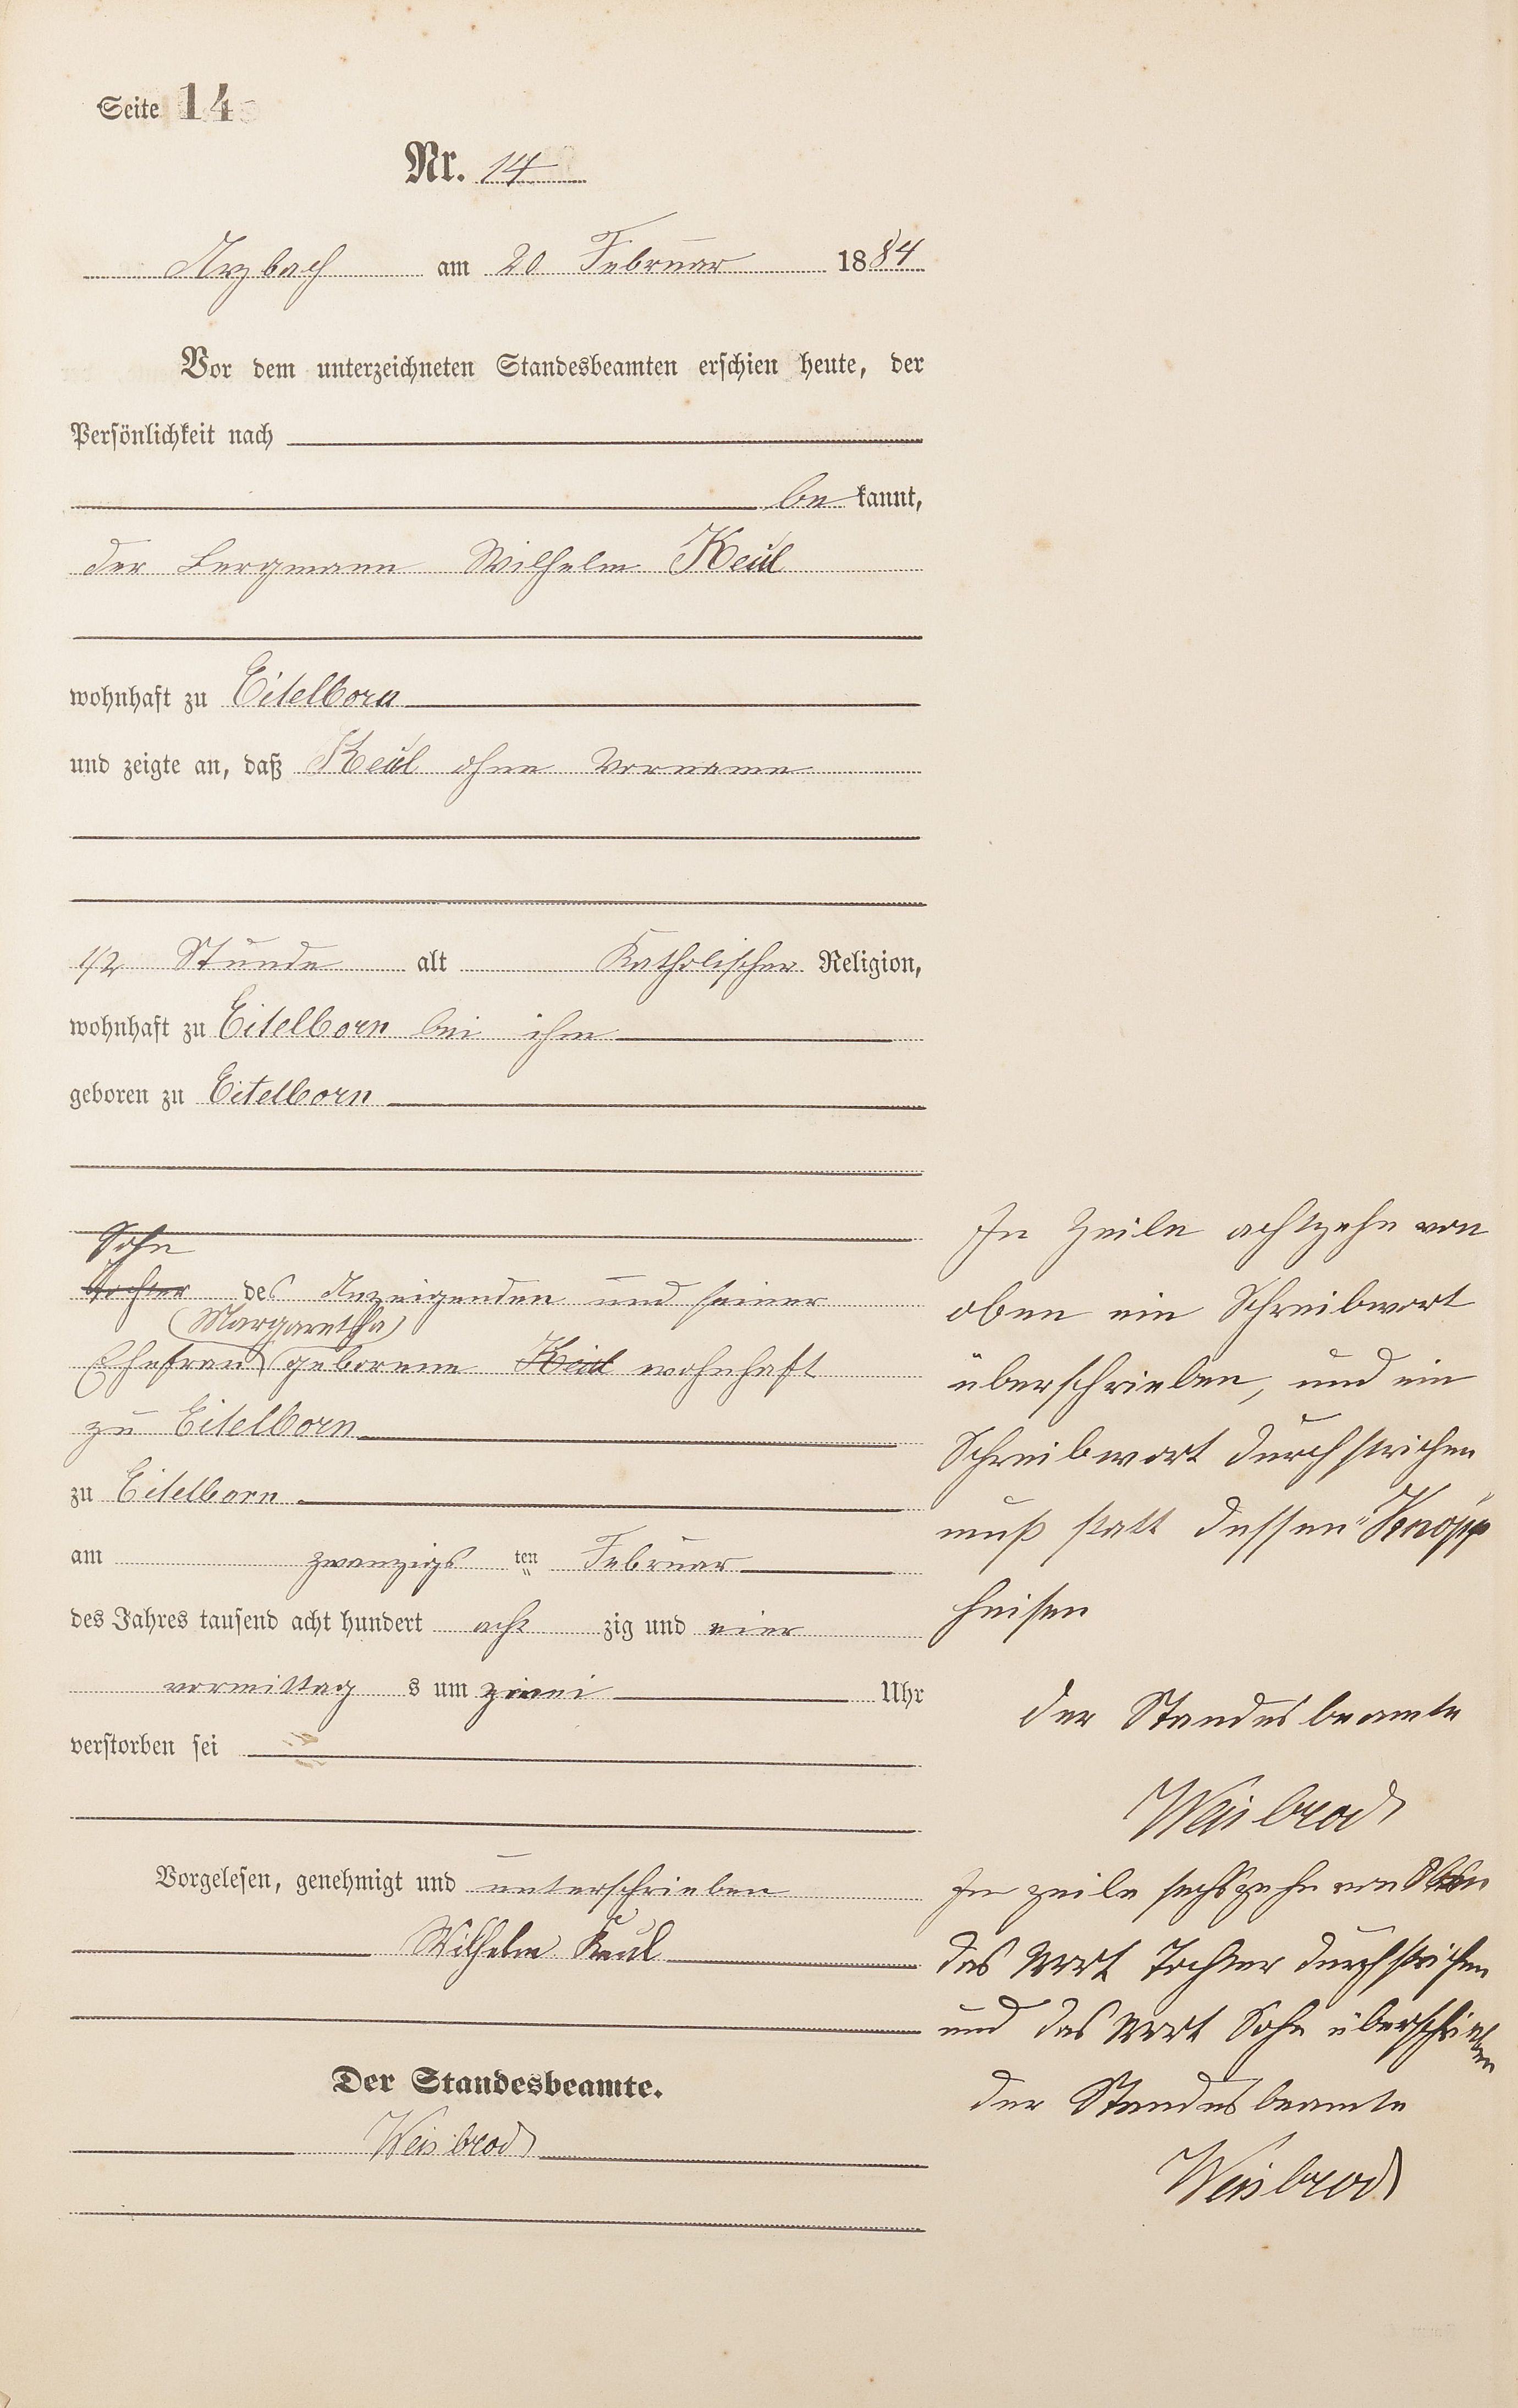 Seite 14
Nr. 14
Arzbach am 20 Februar 1884
Vor dem unterzeichneten Standesbeamten erschien heute, der
Persönlichkeit nach
be kannt,
der Bergmann Wilhelm Keul
wohnhaft zu Eitelborn
und zeigte an, daß Keul ohne Vorname
1/2 Stunde alt Katholischer Religion,
wohnhaft zu Eitelborn bei ihm
geboren zu Eitelborn
Sohn
Tochter des Anzeigenden und seiner
(Margaretha)
Ehefrau geborene Keul wohnhaft
zu Eitelborn
zu Eitelborn
am zwanzigs ten Februar
des Jahres tausend acht hundert acht zig und vier
vormittag s um zwei Uhr
verstorben sei
Vorgelesen, genehmigt und unterschrieben
Wilhelm Keul
Der Standesbeamte.
Weisbrod
In Zeile achtzehn von
oben ein Schreibwort
überschrieben, und ein
Schreibwort durchstrichen
muß statt dessen "Knopp"
heisen
der Standesbeamte
Weisbrod
In zeile sechszehn von Oben
das Wort Tochter durchstrichen
und das Wort Sohn überschrieben
der Standesbeamte
Weisbrod